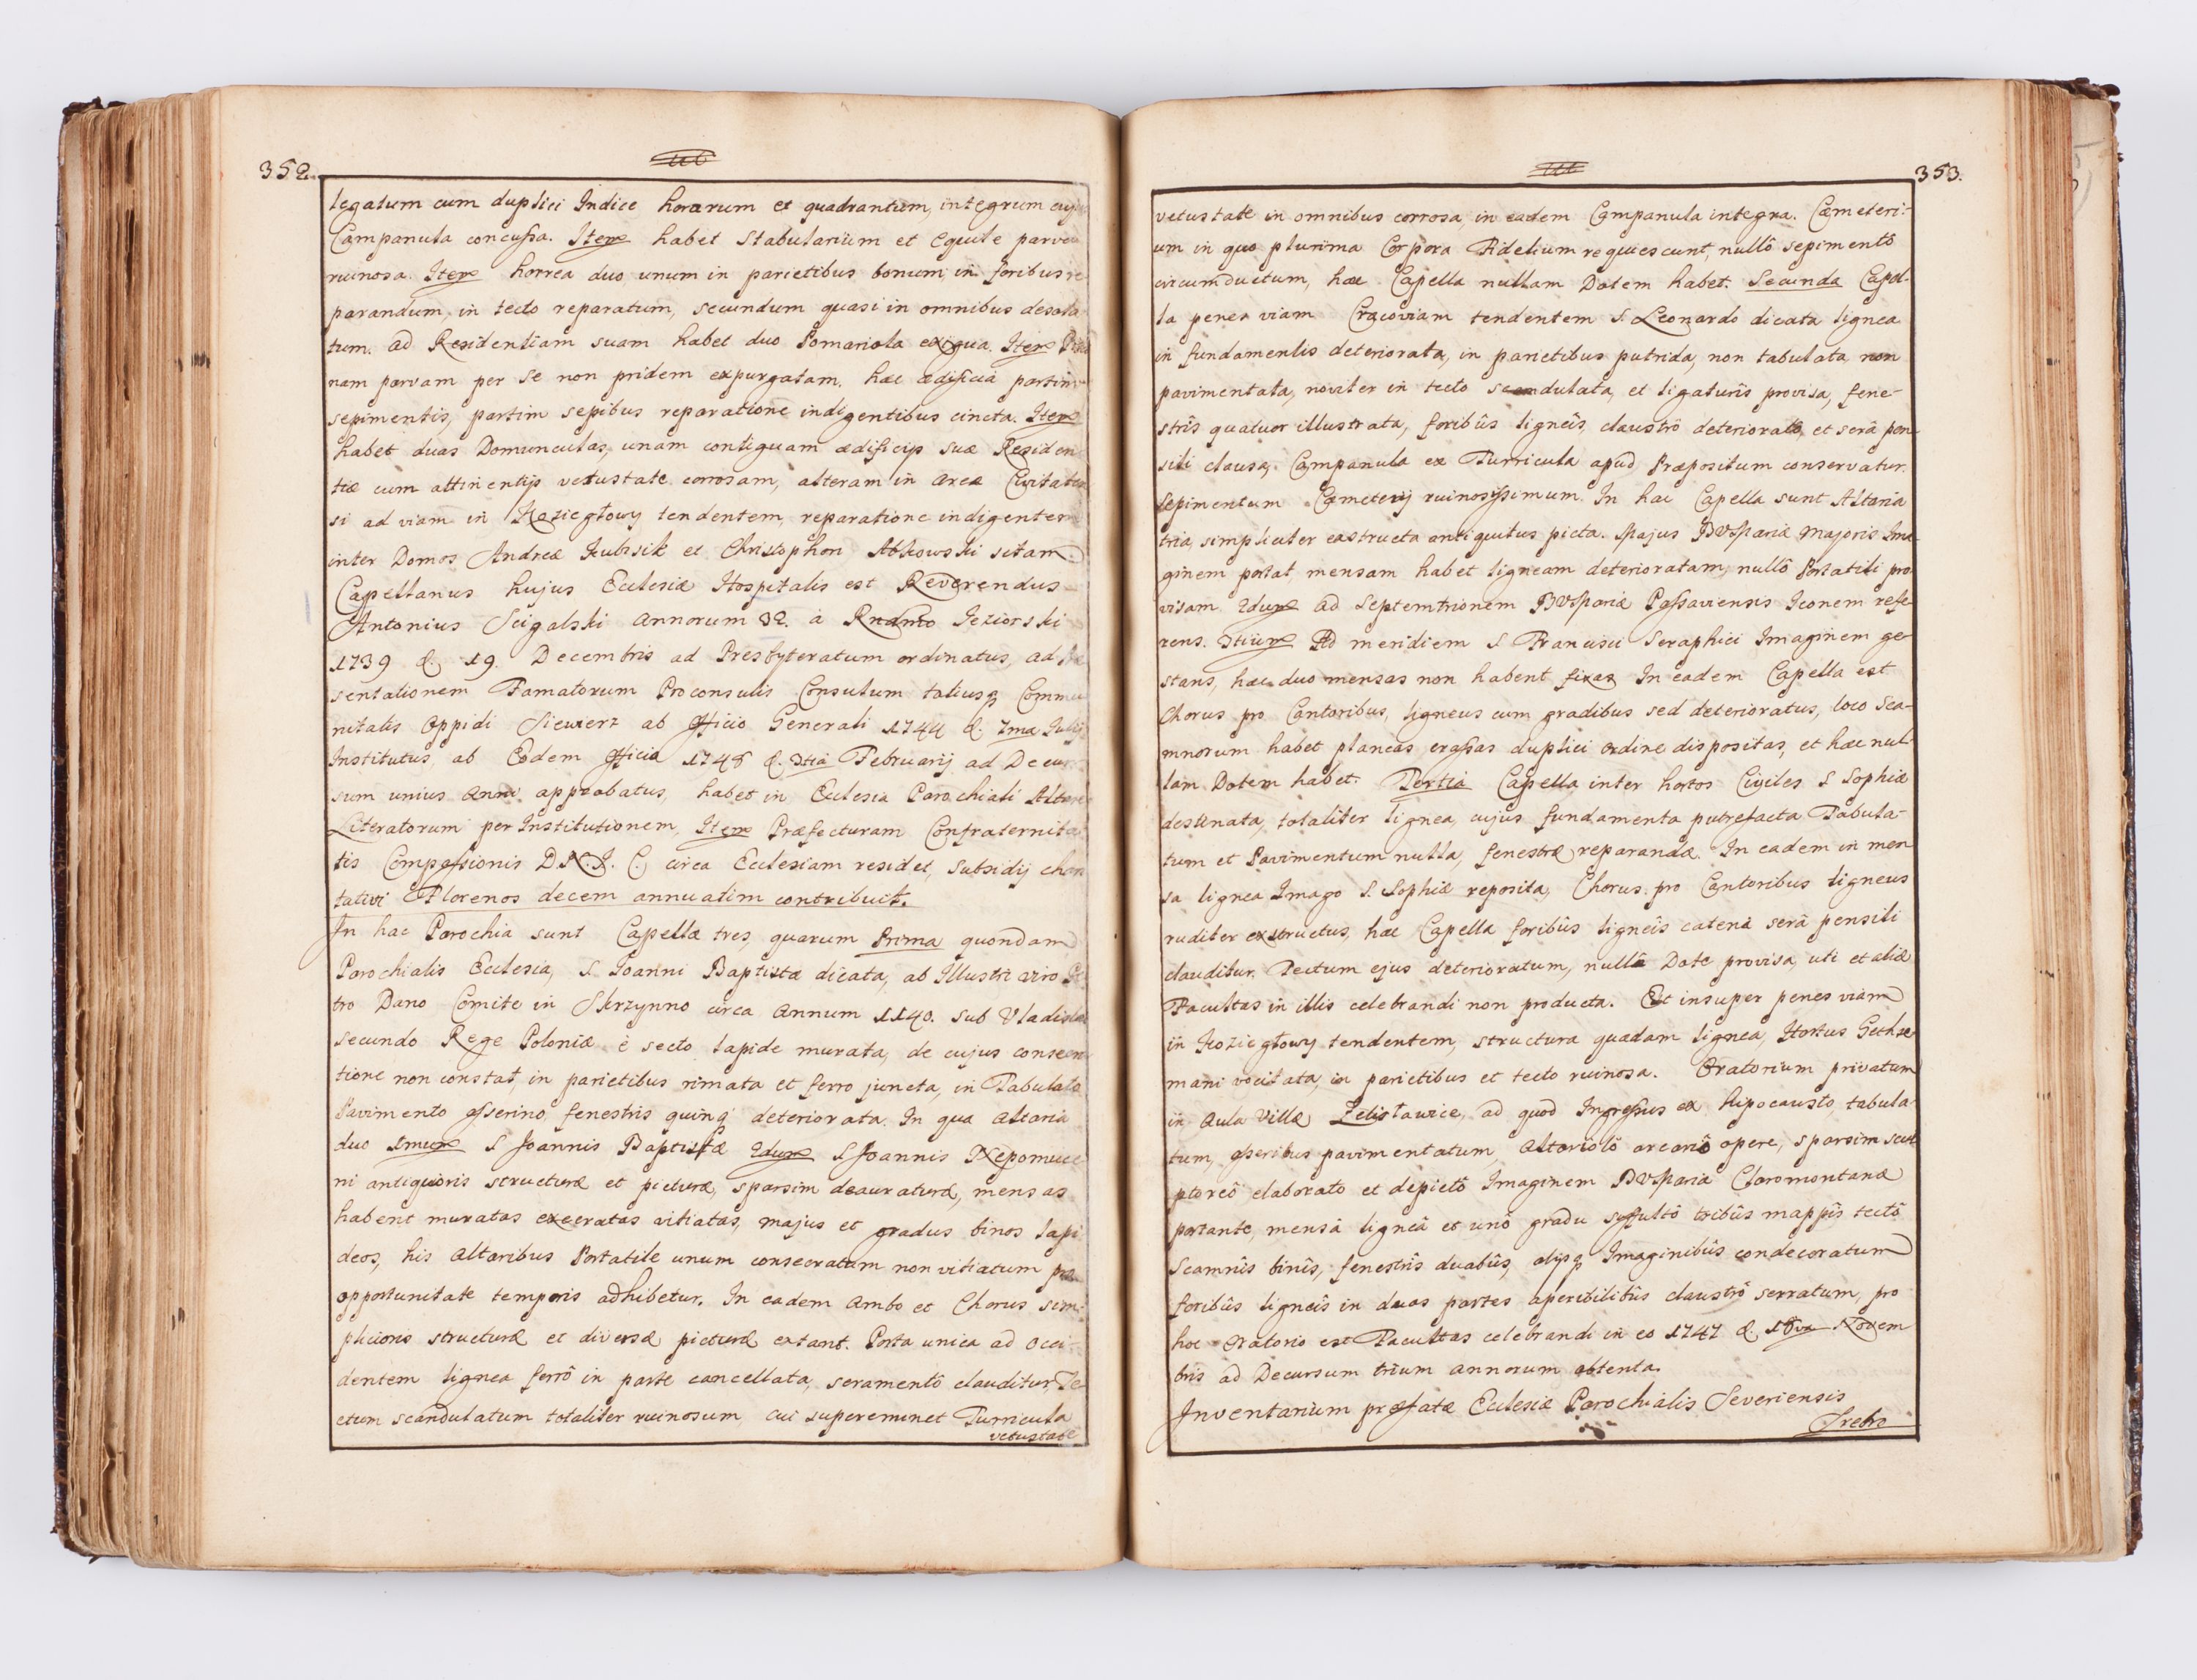 352.
legatum cum duplici Indice horarum et quadrantum, integrum cujus
Campanula concussa. Item habet Stabularium et Equile parvum
ruinosa. Item horrea duo unum in parietibus bonum, in foribus re
parandum, in tecto reparatum, secundum quasi in omnibus desola
tum. ad Residentiam suam habet duo Pomariola exigua. Item
nam parvam per se non pridem expurgatam. hæc ædificia partim
sepimentis, partim sepibus reparatione indigentibus cincta. Item
habet duas Domunculas, unam contiguam ædificijs suæ Residen
tiæ cum attinentijs vetustate corrosam, alteram in area Civitaten
si ad viam in Koziegłowy tendentem, reparatione indigentem
inter Domos Andreæ Kubisik et Christophori sitam
Capellanus hujus Ecclesiæ Hospitalis est Reverendus
Antonius Scigalski annorum 32. à Rndmo Jeziorski
1739 d. 19. Decembris ad Presbyteratum ordinatus, ad Præ
sentationem Famatorum Proconsulis Consulum totiusq Commu
nitatis Oppidi Siewierz ab Officio Generali 1744 d. 7ma Julij
Institutus, ab Eodem Officio 1748 d. 3tia Februarij ad Decur
sum unius anni approbatus, habet in Ecclesia Parochiali Altare
Literatorum per Institutionem, Item Præfecturam Confraternita
tis Compassionis D.N.J.C. circa Ecclesiam residet, Subsidij chari
tativi Florenos decem annuatim contribuit.
In hac Parochia sunt Capellæ tres, quarum Prima quondam
Parochialis Ecclesia, S. Joanni Baptistæ dicata, ab Illustri viro Pe
tro Dano Comite in Skrzynno circa Annum 1140. sub Vladislao
secundo Rege Poloniæ è secto lapide murata, de cujus consecra
tione non constat, in parietibus rimata et ferro juncta, in Tabulato
Pavimento asserino fenestris quinq deteriorata. In qua altaria
duo 1mum S Joannis Baptistæ 2dum S Joannis Nepomuce
ni antiquioris structuræ et picturæ, sparsim deauraturæ, mensas
habent muratas execratas vitiatas, majus et gradus binos lapi
deos, his altaribus Portatile unum consecratum non vitiatum pro
opportunitate temporis adhibetur. In eadem Ambo et Chorus sim
plicioris structuræ et diversæ picturæ extant. Porta unica ad Occi
dentem lignea ferrô in parte cancellata, seramentô clauditur, Te
ctum scandulatum totaliter ruinosum cui supereminet Turricula
vetustate
353.
vetustate in omnibus corrosa, in eadem Campanula integra. Cæmeteri-
um in quo plurima Corpora Fidelium requiescunt, nullô sepimentô
circumductum, hæc Capella nullam Dotem habet. Secunda Capel-
la penes viam Cracoviam tendentem S. Leonardo dicata lignea
in fundamentis deteriorata, in parietibus putrida, non tabulata, non
pavimentata, noviter in tecto scandulata, et ligaturis provisa, fene-
strîs quatuor illustrata, foribûs ligneîs, claustrô deteriorato, et serâ pen
sili clausa, Campanula ex Turricula apud Præpositum conservatur.
Sepimentum Cæmeterij ruinosissimum. In hac Capella sunt Altaria
tria, simpliciter exstructa antiquitus picta. Majus BVMariæ Majoris Ima
ginem portat, mensam habet ligneam deterioratam, nullô Portatili pro
visam. 2dum ad Septemtrionem BVMariæ Passaviensis Iconem refe
rens. 3tium Ad meridiem S. Francisci Seraphici Imaginem ge
stans, hæc duo mensas non habent fixas. In eadem Capella est
Chorus pro Cantoribus, ligneus cum gradibus sed deterioratus, loco Sca-
mnorum habet plancas crassas duplici ordine dispositas, et hæc nul
lam Dotem habet. Tertia Capella inter hortos Civiles S Sophiæ
destinata, totaliter lignea, cujus fundamenta putrefacta Tabula-
tum et Pavimentum nulla, fenestræ reparandæ. In eadem in men
sa lignea Imago S. Sophiæ reposita, Chorus pro Cantoribus ligneus
ruditer exstructus, hæc Capella foribûs ligneîs catenâ serâ pensili
clauditur. Tectum ejus deterioratum, nullâ Dote provisa, uti et aliæ
Facultas in illis celebrandi non producta. Est insuper penes viam
in Koziegłowy tendentem, structura quædam lignea, Hortus Gethse
mani vocitata, in parietibus et tecto ruinosa. Oratorium privatum
in Aula Villæ Zelisławice, ad quod Ingressus ex hipocausto, tabula
tum, asseribus pavimentatum, Altariolô arcariô opere, sparsim scul
ptoreô elaborato et depictô Imaginem BVMariæ Claromontanæ
portante, mensâ ligneâ et unô gradu suffultô tribûs mappîs tectô
Scamnîs binîs, fenestrîs duabûs, alijsq Imaginibûs condecoratum
foribûs ligneîs in duas partes aperibilibûs claustrô serratum, pro
hoc Oratorio est Facultas celebrandi in eo 1747 d. 18va Novem
bris ad Decursum trium annorum obtenta.
Inventarium præfatæ Ecclesiæ Parochialis Severiensis